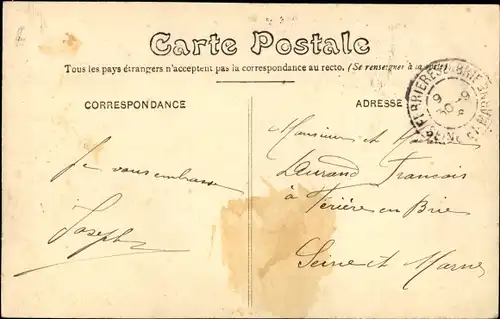 Carte Postale
Tous les pays étrangers n'acceptent pas la correspondance au recto. (Se renseigner à la poste)
CORRESPONDANCE
ADRESSE
FERRIERES EN BRIE
SEINE ET MARNE
Je vous embrasse
Joseph
Monsieur et Madame
Durand Francois
à Férière en Brie
Seine et Marne